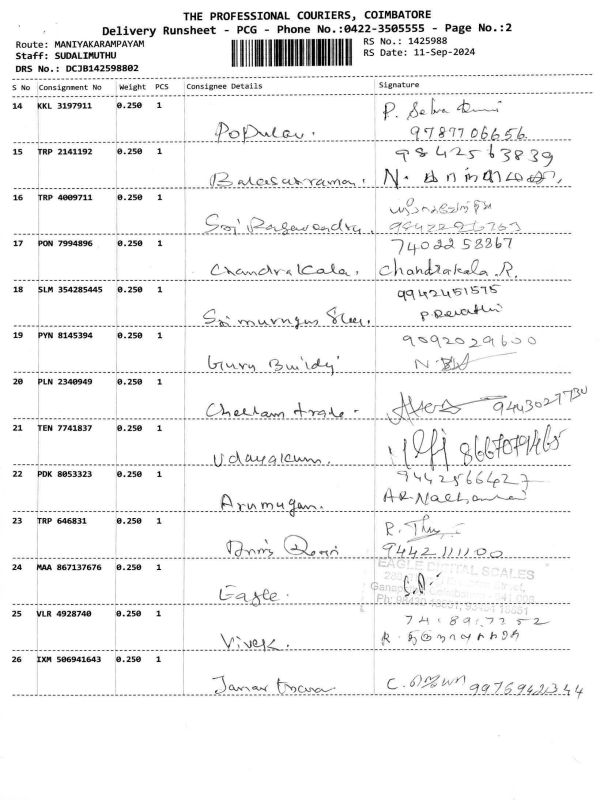 THE PROFESSIONAL COURIERS, COIMBATORE
Delivery Runsheet - PCG - Phone No.:0422-3505555 - Page No.:2
Route: MANIYAKARAMPAYAM
RS No.: 1425988
Staff: SUDALIMUTHU
RS Date: 11-Sep-2024
DRS No.: DCJB142598802
S No Consignment No Weight PCS Consignee Details Signature
14 KKL 3197911 0.250 1
Popular. 9787706656
15 TRP 2141192 0.250 1 9842563839
Balasubraman. N.
16 TRP 4009711 0.250 1
Sri Ragavendra.
17 PON 7994896 0.250 1 7402258867
Chandrakala. Chandrakala.R.
18 SLM 354285445 0.250 1 9942451575
Sri murugan Steel. P.Revathi
19 PYN 8145394 0.250 1 9092029600
Guru N.
20 PLN 2340949 0.250 1
Chellam trade. 9443027730
21 TEN 7741837 0.250 1
Udayakum. 8667079465
22 PDK 8053323 0.250 1 9442566427
Arumugam.
23 TRP 646831 0.250 1 R.
9442111100
24 MAA 867137676 0.250 1 EAGLE DIGITAL SCALES
Eagle.
25 VLR 4928740 0.250 1
Vivek. R.
26 IXM 506941643 0.250 1
C. ஜெயா 9976942344